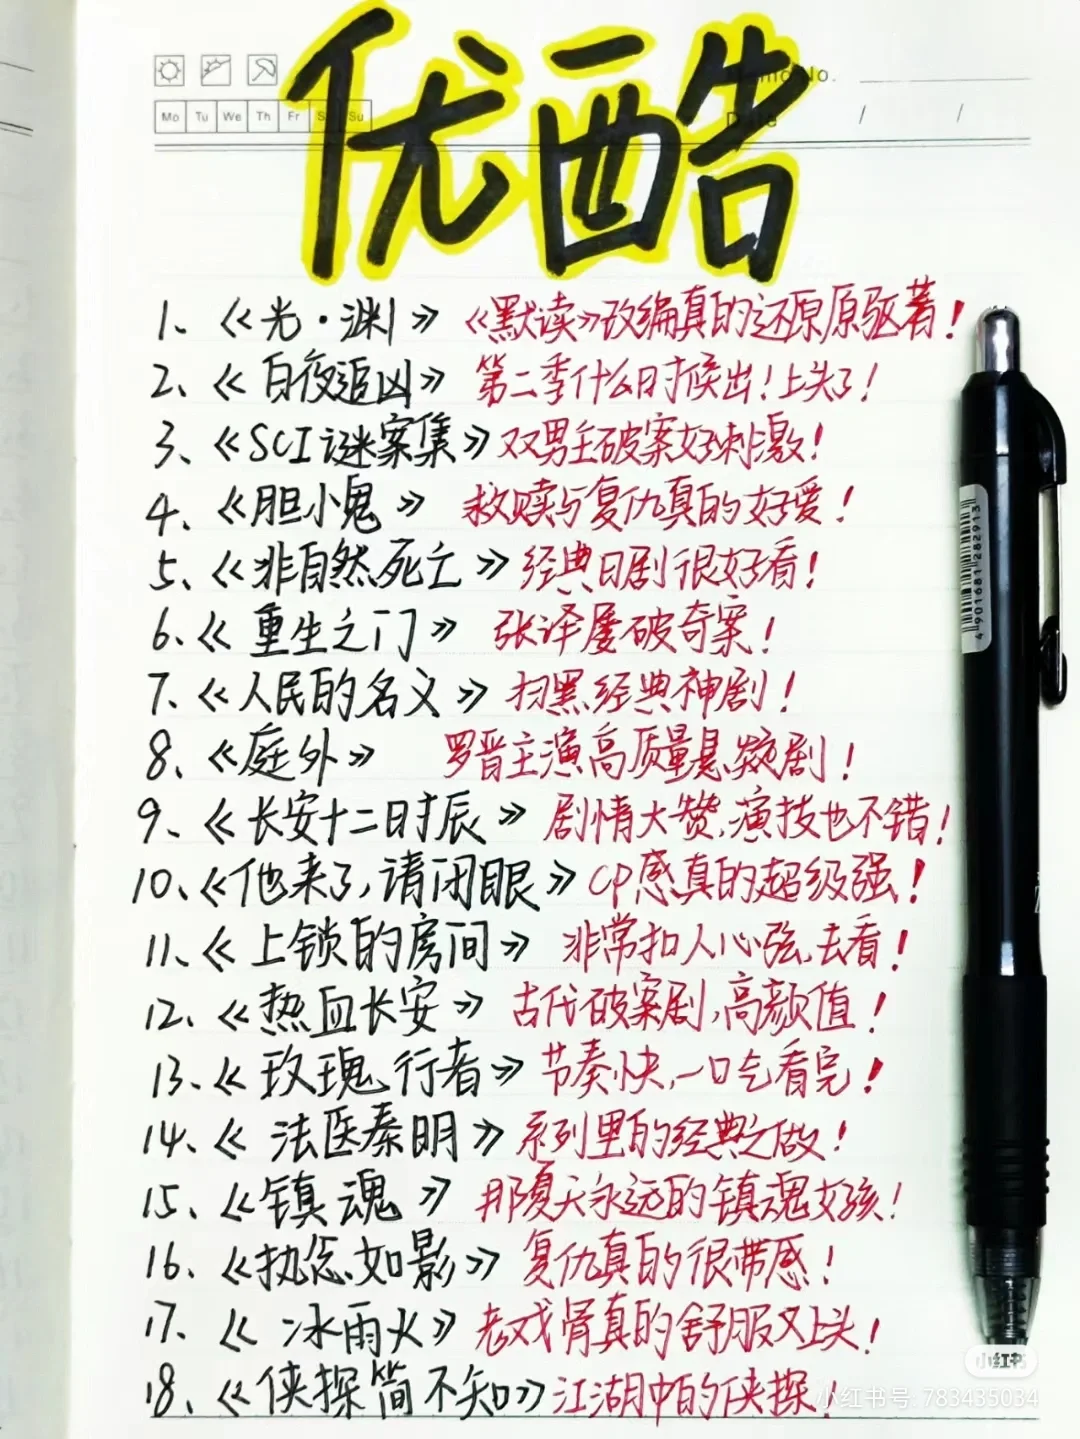 优酷
Mo Tu We Th Fr Su
Memo No.
Date / /
1、《光·渊》 《默读》改编真的还原原著!
2、《白夜追凶》 第二季什么时候出!上头了!
3、《SCI谜案集》双男主破案好刺激!
4、《胆小鬼》 救赎与复仇真的好爱!
5、《非自然死亡》经典日剧很好看!
6、《重生之门》 张译屡破奇案!
7、《人民的名义》扫黑经典神剧!
8、《庭外》 罗晋主演高质量悬疑剧!
9、《长安十二时辰》 剧情大赞,演技也不错!
10、《他来了,请闭眼》CP感真的超级强!
11、《上锁的房间》 非常扣人心弦,去看!
12、《热血长安》 古代破案剧,高颜值!
13、《玫瑰行者》节奏快,一口气看完!
14、《法医秦明》系列里的经典之做!
15、《镇魂》 那夏天永远的镇魂女孩!
16、《执念如影》 复仇真的很带感!
17、《冰雨火》老戏骨真的舒服又上头!
18、《侠探简不知》江湖中的侠探!
4901681282913
小红书
小红书号: 783435034